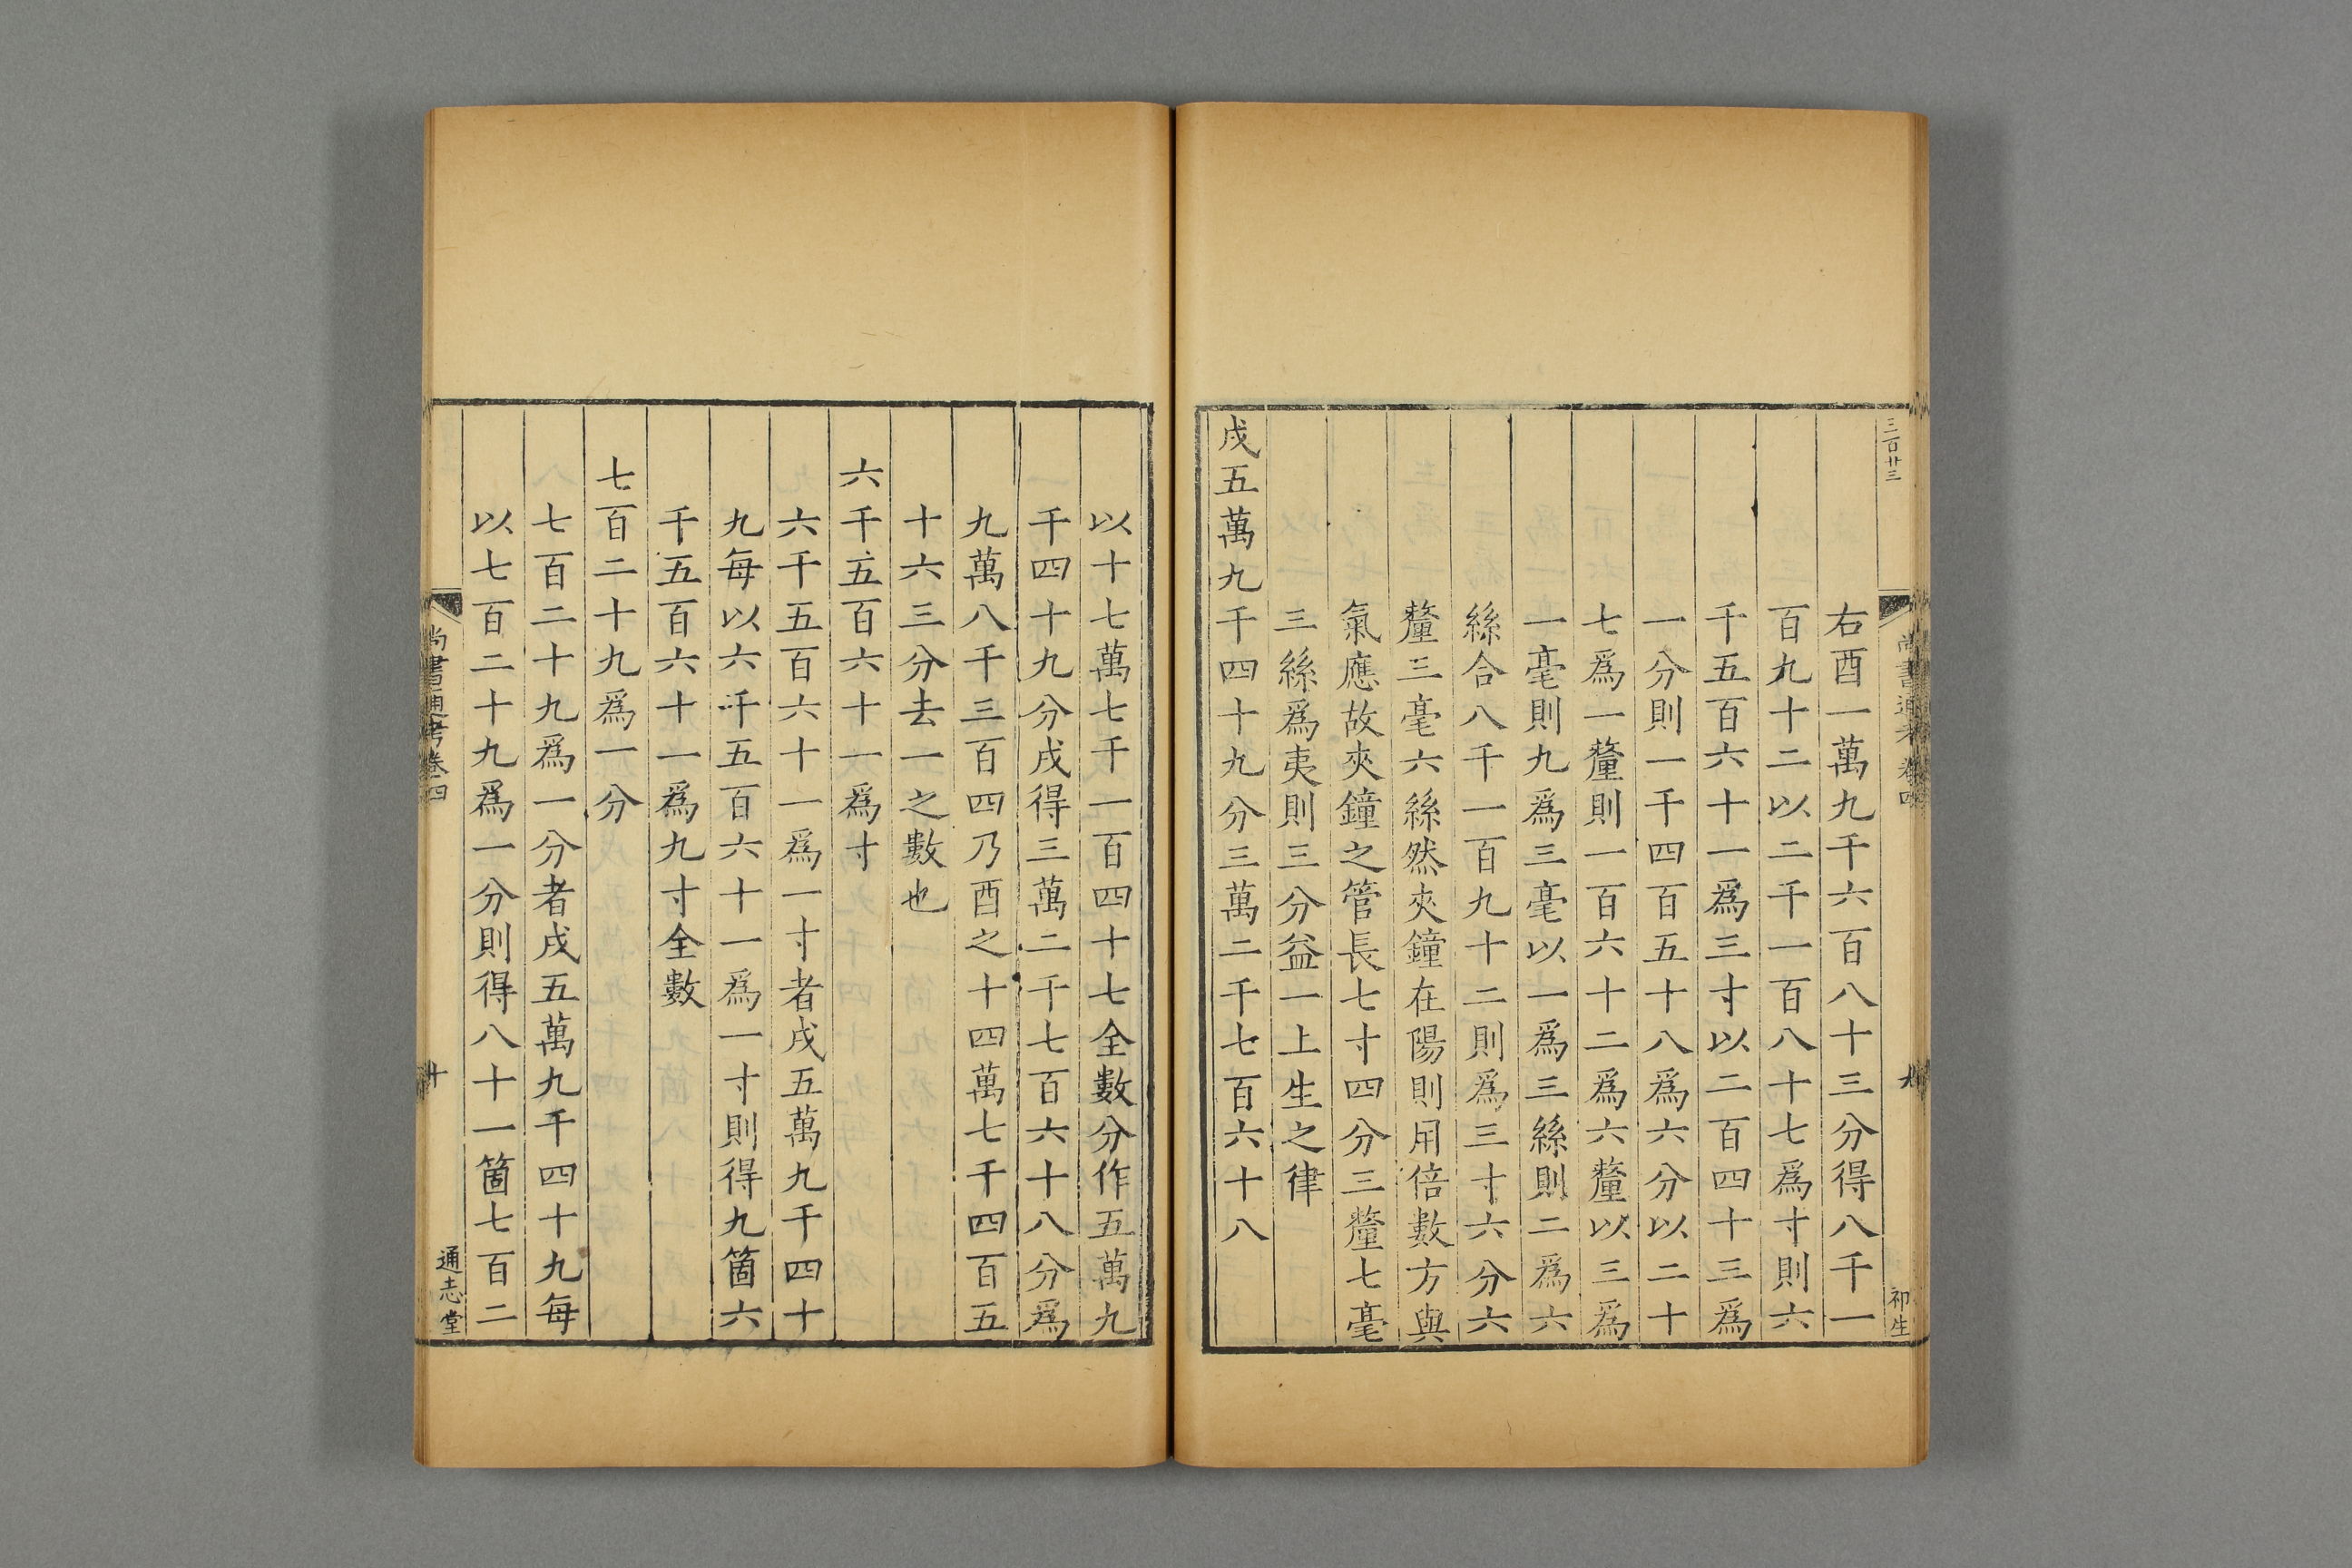 三百廿三
尚書通考卷四
九
祁生
右酉一萬九千六百八十三分得八千一
百九十二以二千一百八十七爲寸則六
千五百六十一爲三寸以二百四十三爲
一分則一千四百五十八爲六分以二十
七爲一釐則一百六十二爲六釐以三爲
一毫則九爲三毫以一爲三絲則二爲六
絲合八千一百九十二則爲三寸六分六
釐三毫六絲然夾鐘在陽則用倍數方與
氣應故夾鐘之管長七寸四分三釐七毫
三絲爲夷則三分益一上生之律
戌五萬九千四十九分三萬二千七百六十八
以十七萬七千一百四十七全數分作五萬九
千四十九分戌得三萬二千七百六十八分爲
九萬八千三百四乃酉之十四萬七千四百五
十六三分去一之數也
六千五百六十一爲寸
六千五百六十一爲一寸者戌五萬九千四十
九每以六千五百六十一爲一寸則得九箇六
千五百六十一爲九寸全數
七百二十九爲一分
七百二十九爲一分者戌五萬九千四十九每
以七百二十九爲一分則得八十一箇七百二
尚書通考卷四
十
通志堂